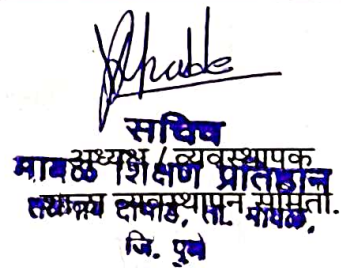 सचिव
अध्यक्ष / व्यवस्थापक
मावळ शिक्षण प्रतिष्ठान
व्यवस्थापन समिती.
दाभाडे, ता. मावळ,
जि. पुणे